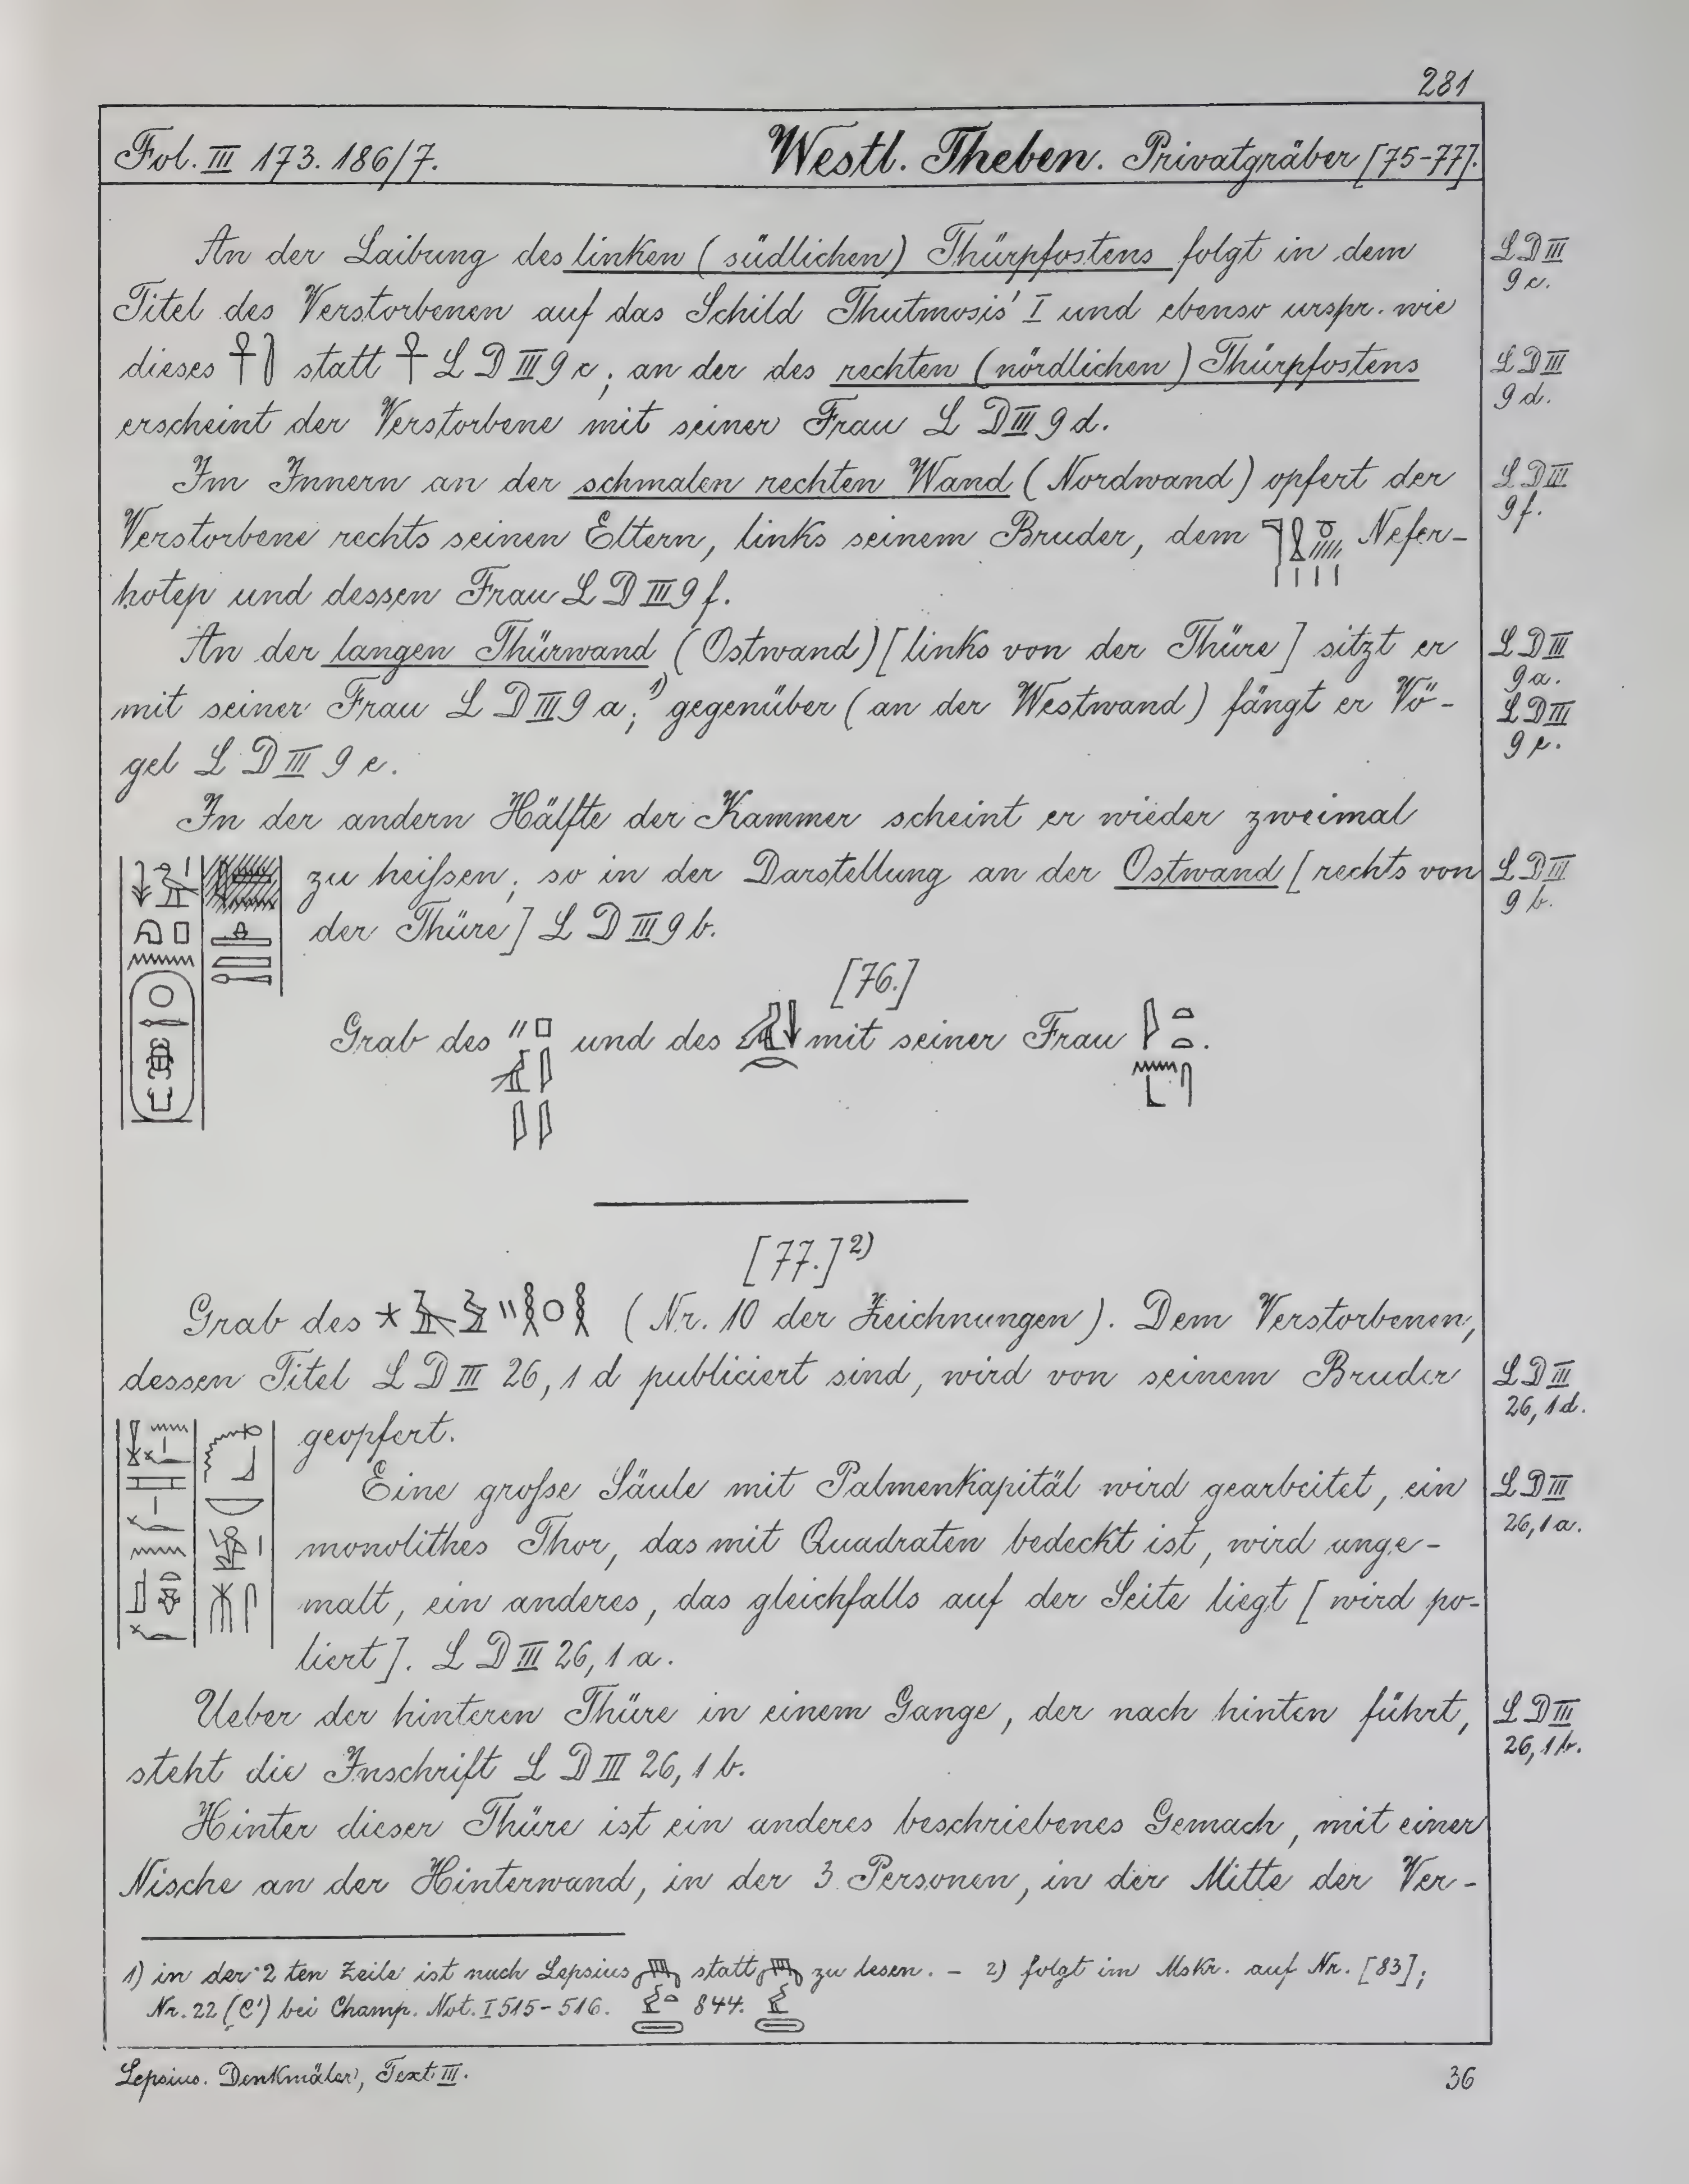 281
Fol. III 173. 186/7. Westl. Theben. Privatgräber [75-77].
An der Laibung des linken (südlichen) Thürpfostens folgt in dem
LD III 9 c.
Titel des Verstorbenen auf das Schild Thutmosis' I und ebenso urspr. wie
dieses statt LD III 9 c; an der des rechten (nördlichen) Thürpfostens
LD III 9 d.
erscheint der Verstorbene mit seiner Frau LD III 9 d.
Im Innern an der schmalen rechten Wand (Nordwand) opfert der
LD III 9 f.
Verstorbene rechts seinen Eltern, links seinem Bruder, dem Nefer-
hotep und dessen Frau LD III 9 f.
An der langen Thürwand (Ostwand) [links von der Thüre] sitzt er
LD III 9 a.
mit seiner Frau LD III 9 a; 1) gegenüber (an der Westwand) fängt er Vö-
LD III 9 e.
gel LD III 9 e.
In der andern Hälfte der Kammer scheint er wieder zweimal
zu heißen; so in der Darstellung an der Ostwand [rechts von
LD III 9 b.
der Thüre] LD III 9 b.
[76.]
Grab des und des mit seiner Frau .
[77.] 2)
Grab des (Nr. 10 der Zeichnungen). Dem Verstorbenen,
dessen Titel LD III 26, 1 d publiciert sind, wird von seinem Bruder
LD III 26, 1 d.
geopfert.
Eine große Säule mit Palmenkapitäl wird gearbeitet, ein
LD III 26, 1 a.
monolithes Thor, das mit Quadraten bedeckt ist, wird unge-
malt, ein anderes, das gleichfalls auf der Seite liegt [wird po-
liert]. LD III 26, 1 a.
Ueber der hinteren Thüre in einem Gange, der nach hinten führt,
LD III 26, 1 b.
steht die Inschrift LD III 26, 1 b.
Hinter dieser Thüre ist ein anderes beschriebenes Gemach, mit einer
Nische an der Hinterwand, in der 3 Personen, in der Mitte der Ver-
1) in der 2 ten Zeile ist nach Lepsius statt zu lesen. – 2) folgt im Mskr. auf Nr. [83];
Nr. 22 (C') bei Champ. Not. I 515-516. 844.
Lepsius. Denkmäler, Text III. 36